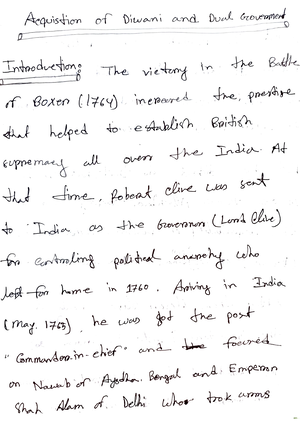 Acquisition of Diwani and Dual Government
Introduction: The victory in the Battle
of Boxer (1764) increared the prestise
that helped to establish British
supremacy all over the India. At
that time, Robert clive was sent
to India as the Governor (Lord Clive)
for controling political anarchy who
left for home in 1760. Ariving in India
(May, 1765), he was got the post
"Commandor-in-chief" and focused
on Nawab of Ayodha, Bengal and Emperor
Shah Alam of Delhi who took arms